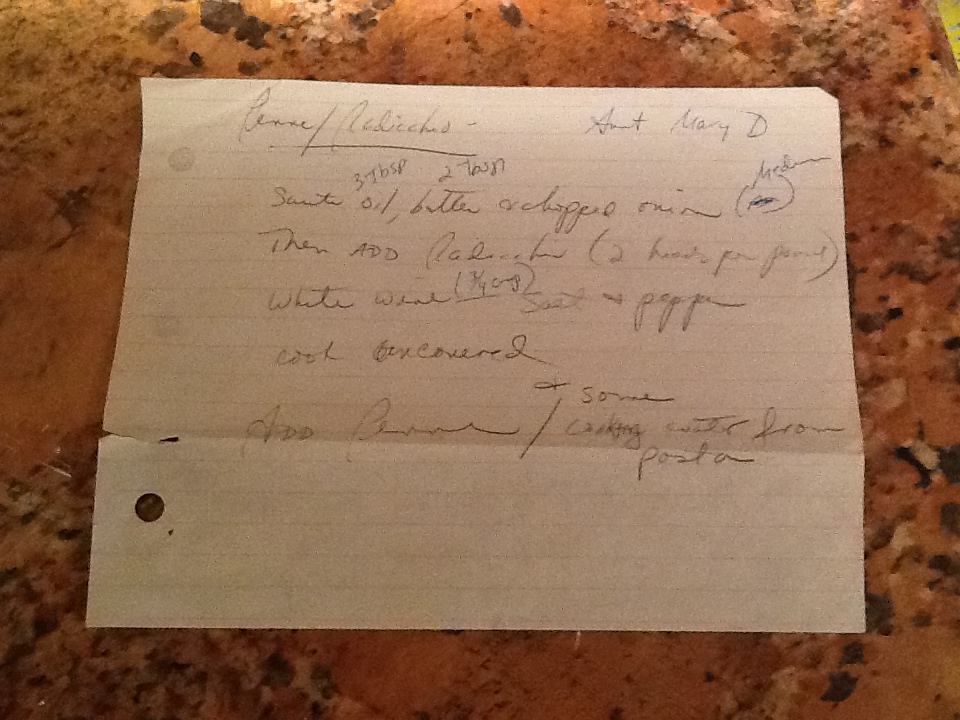 Penne/Radicchio - Aunt Mary D
3 Tbsp 2 Tbsp Medium
Saute oil, butter & chopped onion ( )
Then ADD Radicchio (2 heads per pound)
White wine (3/4 cup) Salt + pepper
cook uncovered
+ some
ADD Penne / cooking water from
pasta